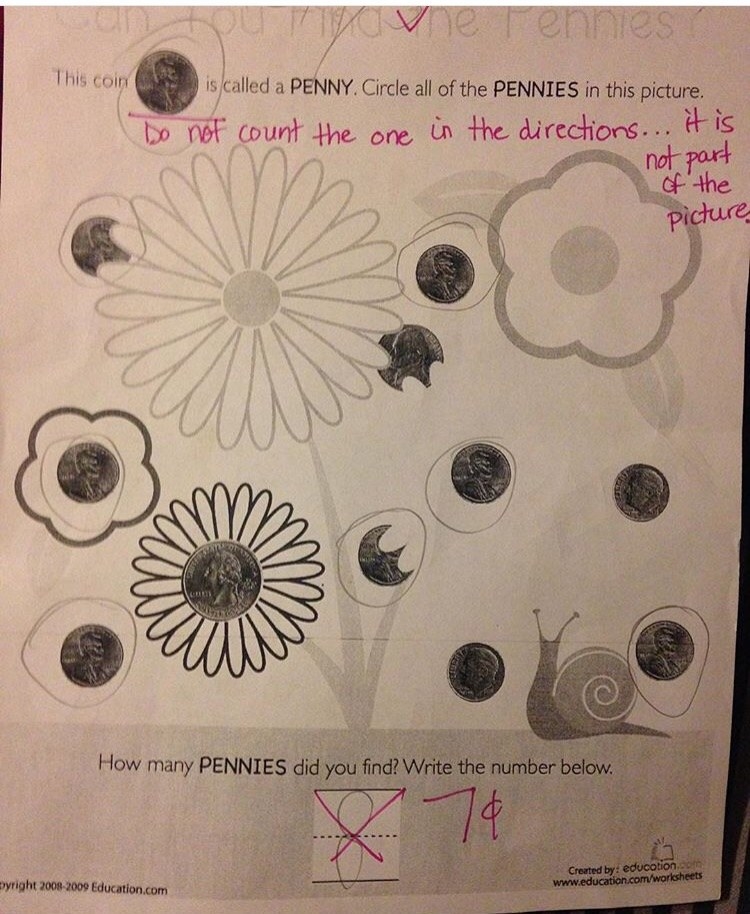 Can You Find the Pennies?
This coin is called a PENNY. Circle all of the PENNIES in this picture.
Do not count the one in the directions... it is
not part
of the
picture.
How many PENNIES did you find? Write the number below.
8 7¢
Created by: education.com
www.education.com/worksheets
pyright 2008-2009 Education.com